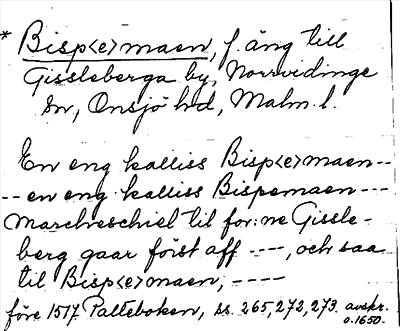 * Bisp<e>maen, f. äng till
Gissleberga by, Norrvidinge
sn, Onsjö hd, Malm. l.
En eng kalliss Bisp<e>maen --
-- en eng kalliss Bispemaen ---
Marchreschiel til for:ne Gissle-
berg gaar föist aff ----, och saa
til Bisp<e>maen; ----
före 1517 Palteboken, ss. 265, 272, 273. avskr.
o. 1650.